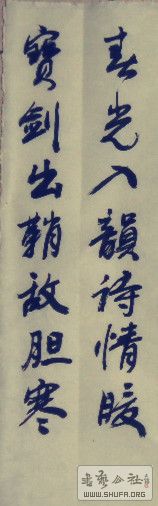 春光入韻诗情暖
寶剑出鞘敌胆寒
書藝公社
WWW.SHUFA.ORG